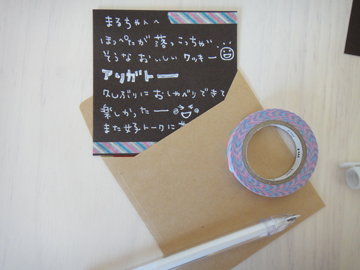 まるちゃんへ
ほっぺたが落っこちが
そうな おいしい クッキー
アリガトー
久しぶりに おしゃべりできて
楽しかったー
また女子トークに